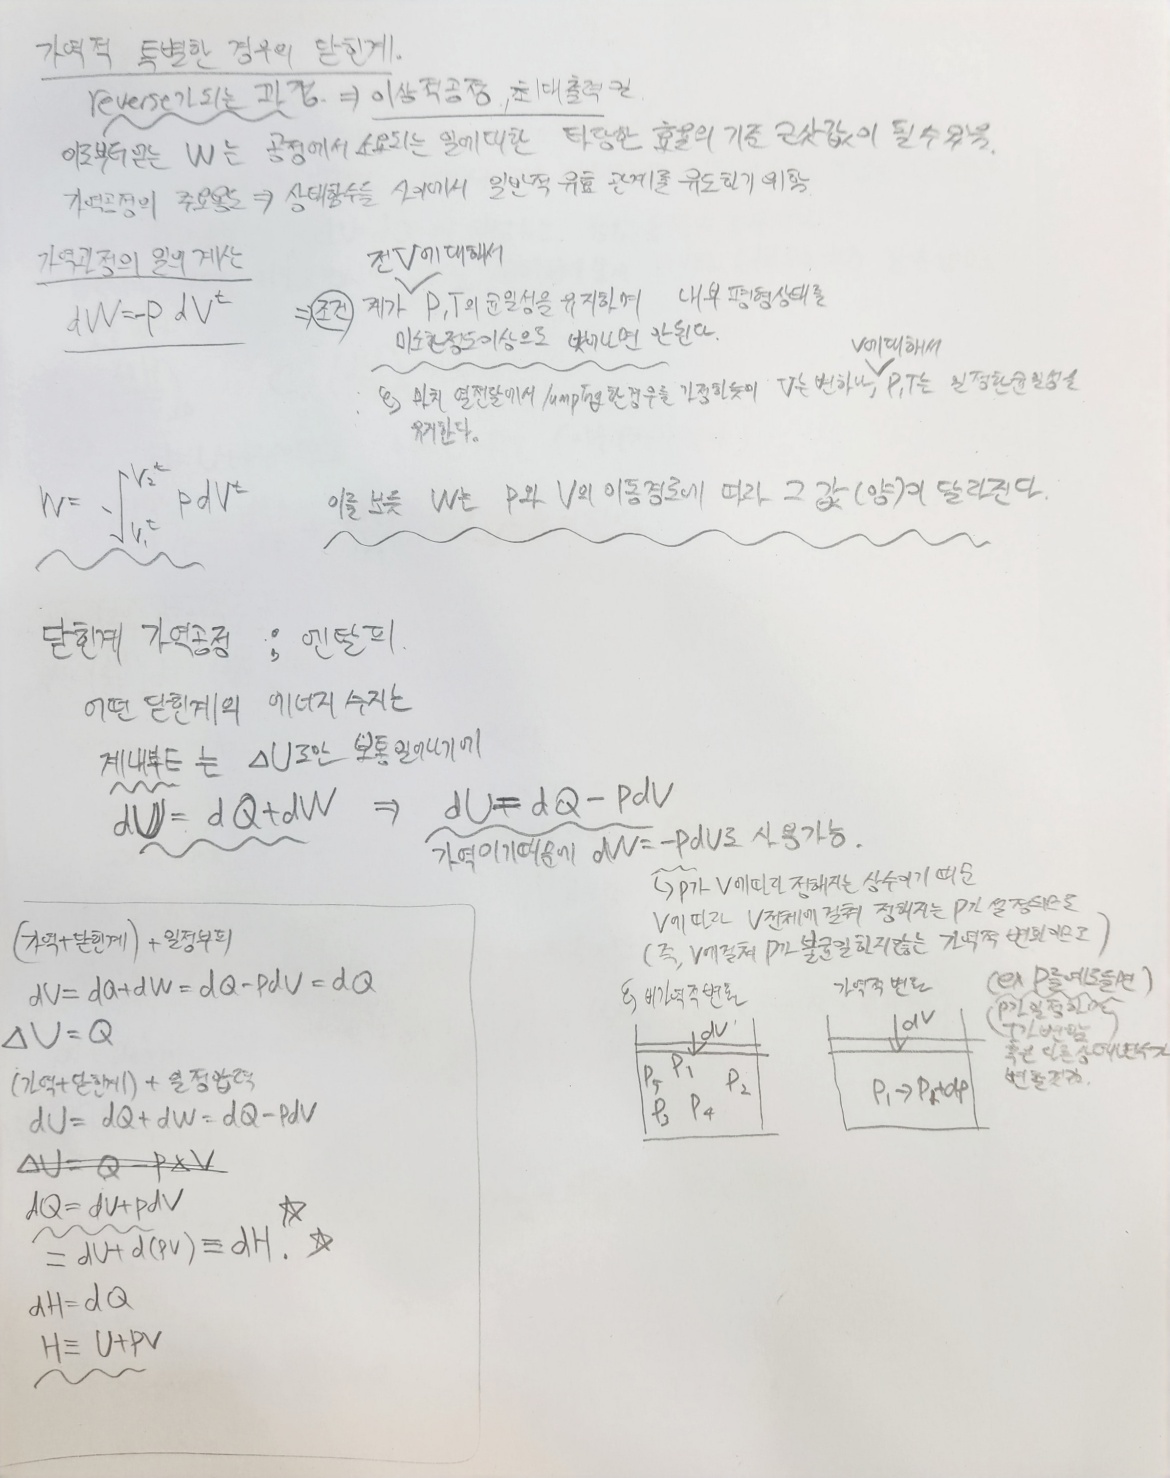 가역적 특별한 경우의 닫힌계.
reverse가 되는 과정. ⇒ 이상적공정, 최대출력
이로부터 얻는 W는 공정에서 소요되는 일에 대한 타당한 효율의 기준 근사값이 될 수
가역공정의 주요용도 ⇒ 상태함수들 사이에서 일반적 유효 관계를 유도하기 위함
가역과정의 일의 계산
전 V에 대해서
dW=-PdVᵗ
⇒ 조건 계가 P,T의 균일성을 유지하며 내부 평형상태를
미소한정도이상으로 벗어나면 안된다.
V에 대해서
마치 열전달에서 lumping한 경우를 가정하듯이 V는 변하나, P,T는 일정한 균일성을
유지한다.
W= ∫V₁ᵗ V₂ᵗ PdVᵗ
이를 보듯 W는 P와 V의 이동경로에 따라 그 값(양)이 달라진다.
닫힌계 가역공정 ; 엔탈피.
어떤 닫힌계의 에너지 수지는
계내부는 ΔU로만 보통일어나기에
dU= dQ+dW ⇒ dU= dQ-PdV
가역이기때문에 dW=-PdV로 사용가능.
↳ P가 V에따라 정해지는 상수이기 때문
V에 따라 V전체에 걸쳐 정해지는 P가 설정되므로
(즉, V에걸쳐 P가 불균일하지않는 가역적 변화이므로)
비가역적변화
dV
P₅ P₁ P₂
P₃ P₄
가역적 변화
dV
P₁→P₁+dP
(ex P를예로들면)
P가 일정하며
T가 변함
혹은 다른상태변수가
(가역+닫힌계) + 일정부피
dU= dQ+dW = dQ-PdV = dQ
ΔU=Q
(가역+닫힌계) + 일정압력
dU= dQ+dW= dQ-PdV
ΔU= Q -P×V
dQ= dU+PdV
= dU+d(PV) ≡ dH. ☆ ☆
dH=dQ
H≡ U+PV